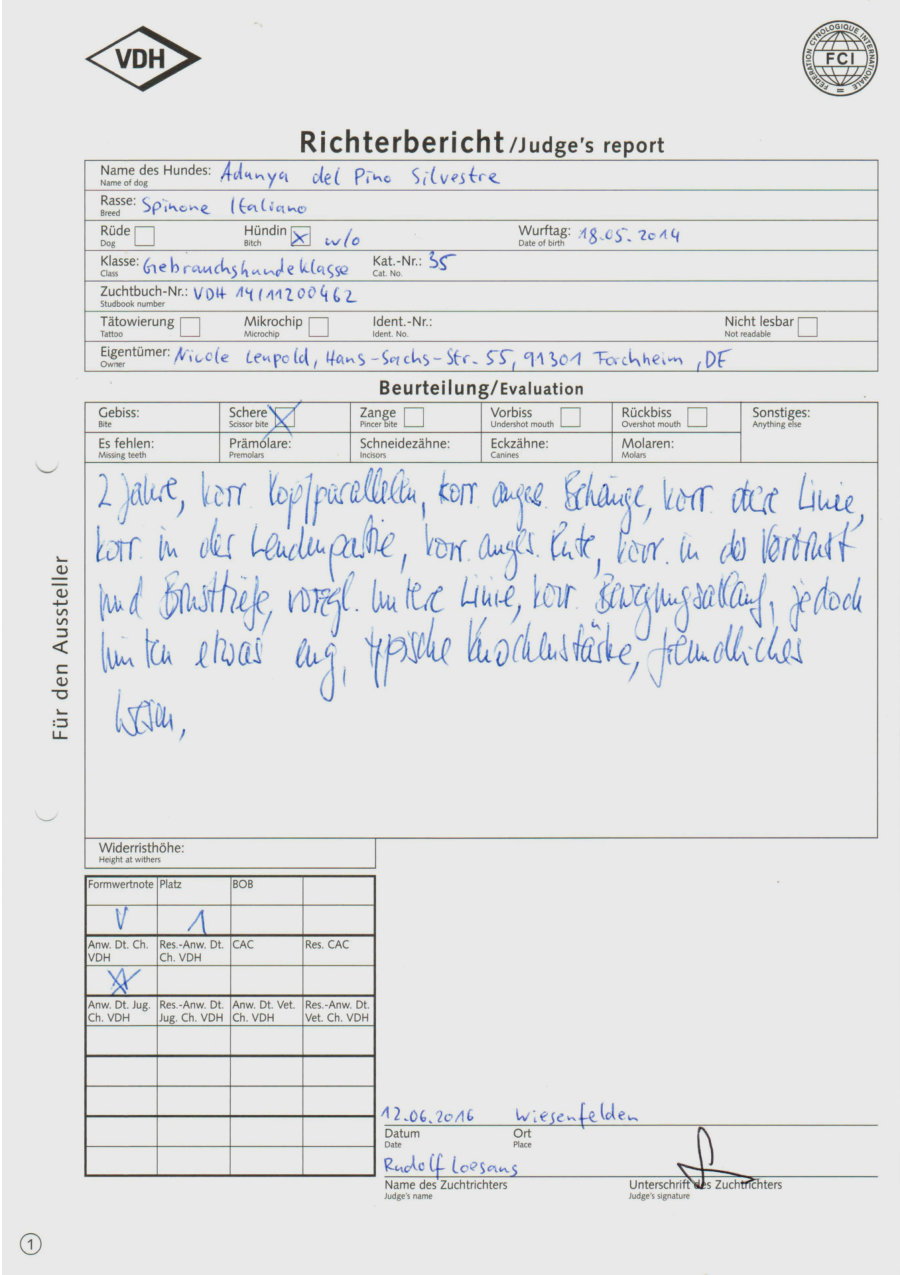 VDH
FEDERATION CYNOLOGIQUE INTERNATIONALE
FCI
Richterbericht/Judge's report
Name des Hundes: Adunya del Pino Silvestre
Name of dog
Rasse: Spinone Italiano
Breed
Rüde Hündin w/o Wurftag: 18.05.2014
Dog Bitch Date of birth
Klasse: Gebrauchshundeklasse Kat.-Nr.: 35
Class Cat. No.
Zuchtbuch-Nr.: VDH 14/11200462
Studbook number
Tätowierung Mikrochip Ident.-Nr.: Nicht lesbar
Tattoo Microchip Ident. No. Not readable
Eigentümer: Nicole Leupold, Hans-Sachs-Str. 55, 91301 Forchheim, DE
Owner
Beurteilung/Evaluation
Gebiss: Schere Zange Vorbiss Rückbiss Sonstiges:
Bite Scissor bite Pincer bite Undershot mouth Overshot mouth Anything else
Es fehlen: Prämolare: Schneidezähne: Eckzähne: Molaren:
Missing teeth Premolars Incisors Canines Molars
2 Jahre, korr. Kopfparallelen, korr. anges. Behänge, korr. obere Linie,
korr. in der Lendenpartie, korr. anges. Rute, korr. in der Vorbrust
und Brusttiefe, vorzgl. untere Linie, korr. Bewegungsablauf, jedoch
hinten etwas eng, typische Knochenstärke, freundliches
Wesen,
Für den Aussteller
Widerristhöhe:
Height at withers
Formwertnote Platz BOB
V 1
Anw. Dt. Ch. Res.-Anw. Dt. CAC Res. CAC
VDH Ch. VDH
Anw. Dt. Jug. Res.-Anw. Dt. Anw. Dt. Vet. Res.-Anw. Dt.
Ch. VDH Jug. Ch. VDH Ch. VDH Vet. Ch. VDH
12.06.2016 Wiesenfelden
Datum Ort
Date Place
Rudolf Loesans
Name des Zuchtrichters Unterschrift des Zuchtrichters
Judge's name Judge's signature
1